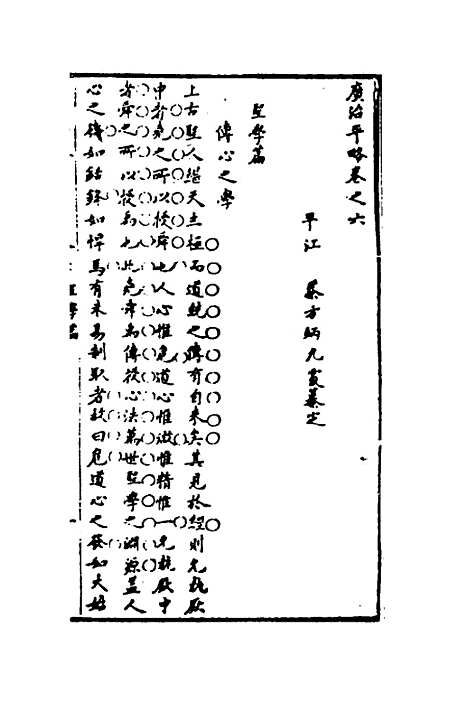 廣治平略卷之六
平江 蔡方炳九霞纂定
聖學篇
傳心之學
上古聖人繼天立極而道統之傳有自來矣其見於經則允執厥
中者堯之所以授舜也人心惟危道心惟微惟精惟一允執厥中
者舜之所以授禹也此堯舜禹傳授心法萬世聖學之淵源蓋人
心之機如銛鋒如悍馬有未易制馭者故曰危道心之發如火始